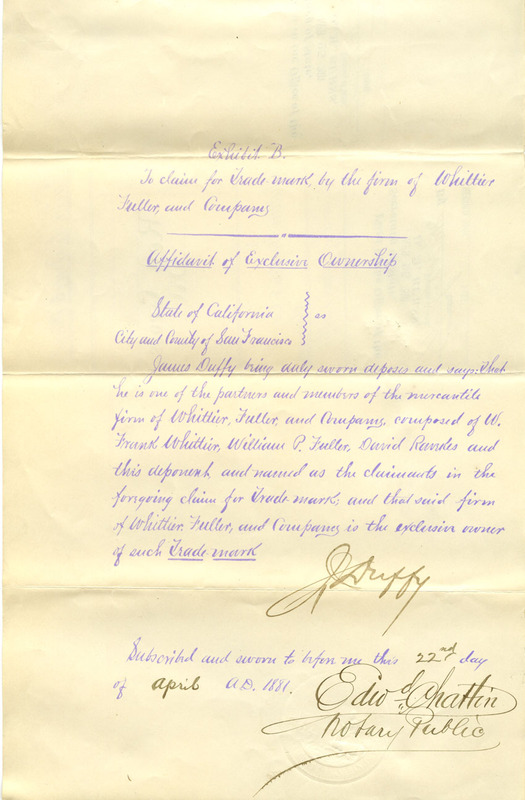 Exhibit B.
To claim for Trade mark, by the firm of Whittier
Fuller, and Company
Affidavit of Exclusive Ownership
State of California
City and County of San Francisco } ss
James Duffy being duly sworn deposes and says: that
he is one of the partners and members of the mercantile
firm of Whittier, Fuller, and Company, composed of W.
Frank Whittier, William P. Fuller, David and
this deponent and named as the claimants in the
foregoing claim for Trade mark, and that said firm
of Whittier Fuller, and Company is the exclusive owner
of such Trade mark
J Duffy
Subscribed and sworn to before me this 22nd day
of april A.D. 1881.
Edwd Chattin
Notary Public